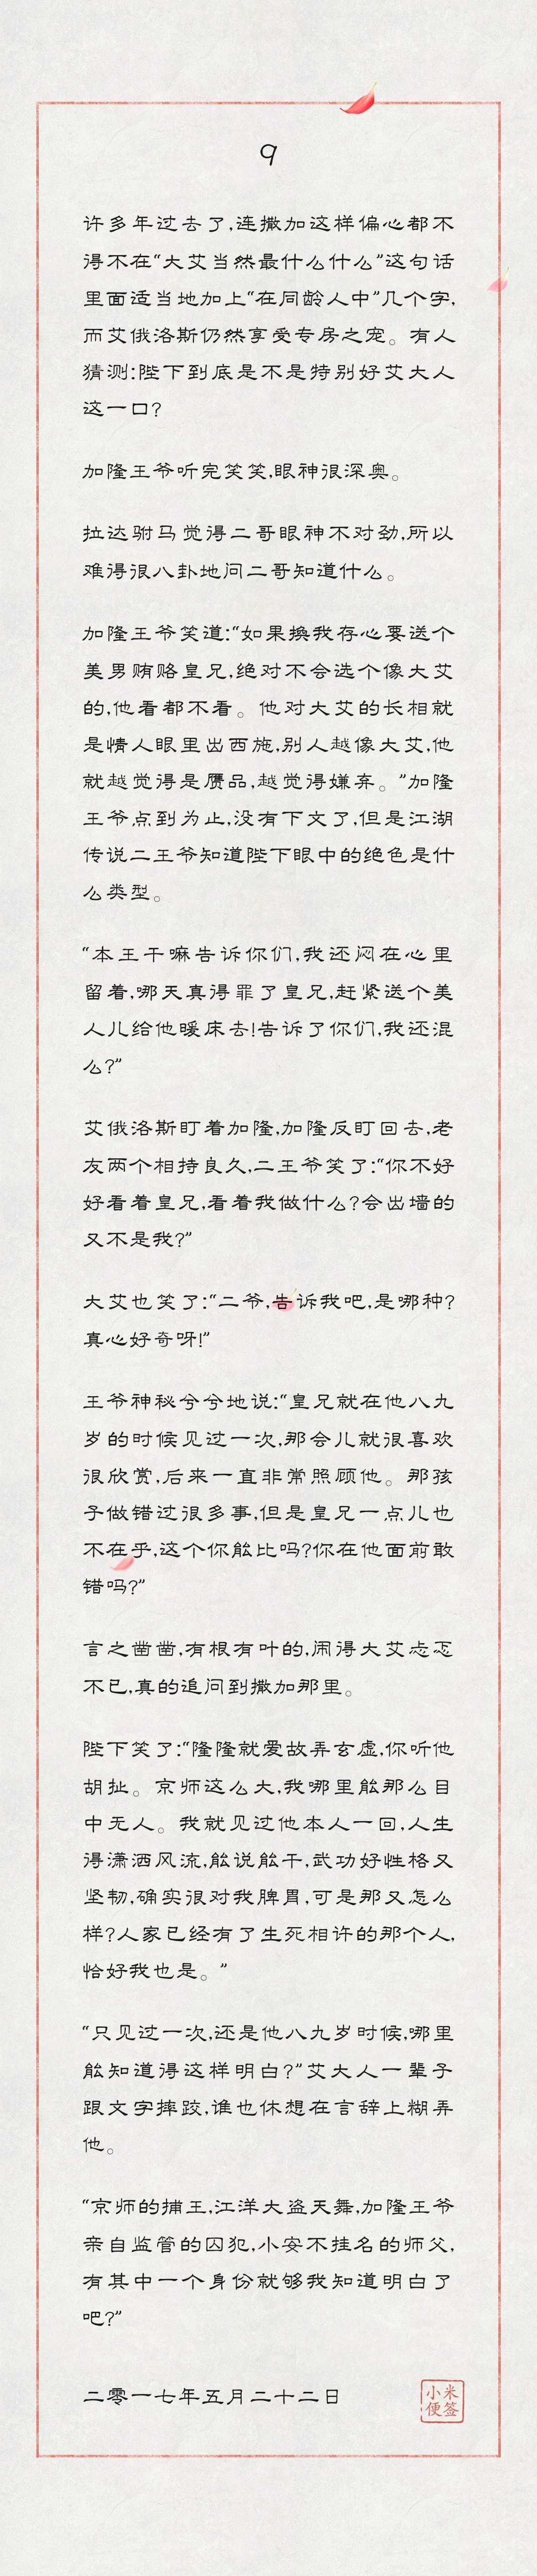 9
许多年过去了,连撒加这样偏心都不
得不在“大艾当然最什么什么”这句话
里面适当地加上“在同龄人中”几个字,
而艾俄洛斯仍然享受专房之宠。有人
猜测:陛下到底是不是特别好艾大人
这一口?
加隆王爷听完笑笑,眼神很深奥。
拉达驸马觉得二哥眼神不对劲,所以
难得很八卦地问二哥知道什么。
加隆王爷笑道:“如果换我存心要送个
美男贿赂皇兄,绝对不会选个像大艾
的,他看都不看。他对大艾的长相就
是情人眼里出西施,别人越像大艾,他
就越觉得是赝品,越觉得嫌弃。”加隆
王爷点到为止,没有下文了,但是江湖
传说二王爷知道陛下眼中的绝色是什
么类型。
“本王干嘛告诉你们,我还闷在心里
留着,哪天真得罪了皇兄,赶紧送个美
人儿给他暖床去!告诉了你们,我还混
么?”
艾俄洛斯盯着加隆,加隆反盯回去,老
友两个相持良久,二王爷笑了:“你不好
好看着皇兄,看着我做什么?会出墙的
又不是我?”
大艾也笑了:“二爷,告诉我吧,是哪种?
真心好奇呀!”
王爷神秘兮兮地说:“皇兄就在他八九
岁的时候见过一次,那会儿就很喜欢
很欣赏,后来一直非常照顾他。那孩
子做错过很多事,但是皇兄一点儿也
不在乎,这个你能比吗?你在他面前敢
错吗?”
言之凿凿,有根有叶的,闹得大艾忐忑
不已,真的追问到撒加那里。
陛下笑了:“隆隆就爱故弄玄虚,你听他
胡扯。京师这么大,我哪里能那么目
中无人。我就见过他本人一回,人生
得潇洒风流,能说能干,武功好性格又
坚韧,确实很对我脾胃,可是那又怎么
样?人家已经有了生死相许的那个人,
恰好我也是。”
“只见过一次,还是他八九岁时候,哪里
能知道得这样明白?”艾大人一辈子
跟文字摔跤,谁也休想在言辞上糊弄
他。
“京师的捕王,江洋大盗天舞,加隆王爷
亲自监管的囚犯,小安不挂名的师父,
有其中一个身份就够我知道明白了
吧?”
二零一七年五月二十二日
小米
便签